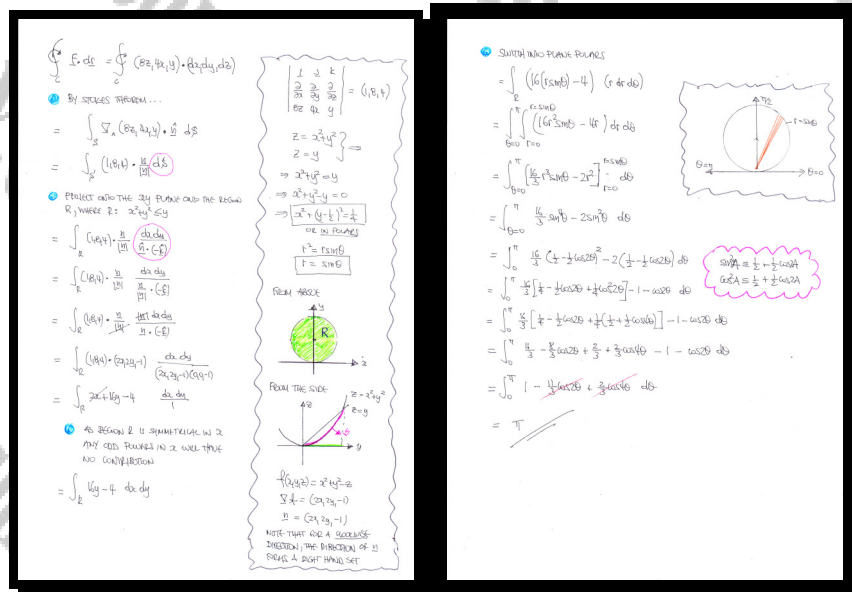 ∮_C F·dr = ∮_C (8z, 4x, y)·(dx, dy, dz)
BY STOKES THEOREM...
= ∫_S ∇∧(8z, 4x, y)·n̂ dS
= ∫_S (1, 8, 4)·n/|n| dS
PROJECT ONTO THE xy PLANE ONTO THE REGION
R, WHERE R: x²+y² ≤ y
= ∫_R (1, 8, 4)·n/|n| dx dy/(n̂·(-k))
= ∫_R (1, 8, 4)·n/|n| dx dy/(n/|n|·(-k))
= ∫_R (1, 8, 4)·n/|n| |n| dx dy/(n·(-k))
= ∫_R (1, 8, 4)·(2x, 2y, -1) dx dy/((2x, 2y, -1)·(0, 0, -1))
= ∫_R 2x+16y-4 dx dy/1
AS REGION R IS SYMMETRICAL IN x
ANY ODD POWERS IN x WILL HAVE
NO CONTRIBUTION
= ∫_R 16y-4 dx dy
| i j k |
| ∂/∂x ∂/∂y ∂/∂z | = (1, 8, 4)
| 8z 4x y |
z = x²+y²
z = y } ⇒
⇒ x²+y² = y
⇒ x²+y²-y = 0
⇒ x²+(y-½)² = ¼
OR IN POLARS
r² = r sinθ
r = sinθ
FROM ABOVE
y
R
x
FROM THE SIDE
z
z = x²+y²
z = y
y
f(x,y,z) = x²+y²-z
∇f = (2x, 2y, -1)
n = (2x, 2y, -1)
NOTE THAT FOR A CLOCKWISE
DIRECTION, THE DIRECTION OF n
FORMS A RIGHT HAND SET
SWITCH INTO PLANE POLARS
= ∫_R (16(r sinθ)-4) (r dr dθ)
= ∫_{θ=0}^{π} ∫_{r=0}^{r=sinθ} (16r² sinθ - 4r) dr dθ
= ∫_{θ=0}^{π} [16/3 r³ sinθ - 2r²]_{r=0}^{r=sinθ} dθ
= ∫_{θ=0}^{π} 16/3 sin⁴θ - 2sin²θ dθ
= ∫_0^π 16/3 (½ - ½cos2θ)² - 2(½ - ½cos2θ) dθ
= ∫_0^π 16/3 [¼ - ½cos2θ + ¼cos²2θ] - 1 - cos2θ dθ
= ∫_0^π 16/3 [¼ - ½cos2θ + ¼(½ + ½cos4θ)] - 1 - cos2θ dθ
= ∫_0^π 4/3 - 8/3 cos2θ + 2/3 + 2/3 cos4θ - 1 - cos2θ dθ
= ∫_0^π 1 - 11/3 cos2θ + 2/3 cos4θ dθ
= π
π/2
r = sinθ
θ=π
θ=0
sin²A ≡ ½ + ½cos2A
cos²A ≡ ½ + ½cos2A